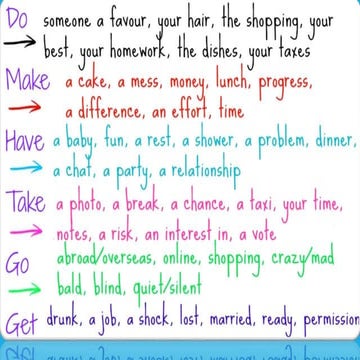 Do someone a favour, your hair, the shopping, your
best, your homework, the dishes, your taxes
Make a cake, a mess, money, lunch, progress,
a difference, an effort, time
Have a baby, fun, a rest, a shower, a problem, dinner,
a chat, a party, a relationship
Take a photo, a break, a chance, a taxi, your time,
notes, a risk, an interest in, a vote
Go abroad/overseas, online, shopping, crazy/mad
bald, blind, quiet/silent
Get drunk, a job, a shock, lost, married, ready, permission